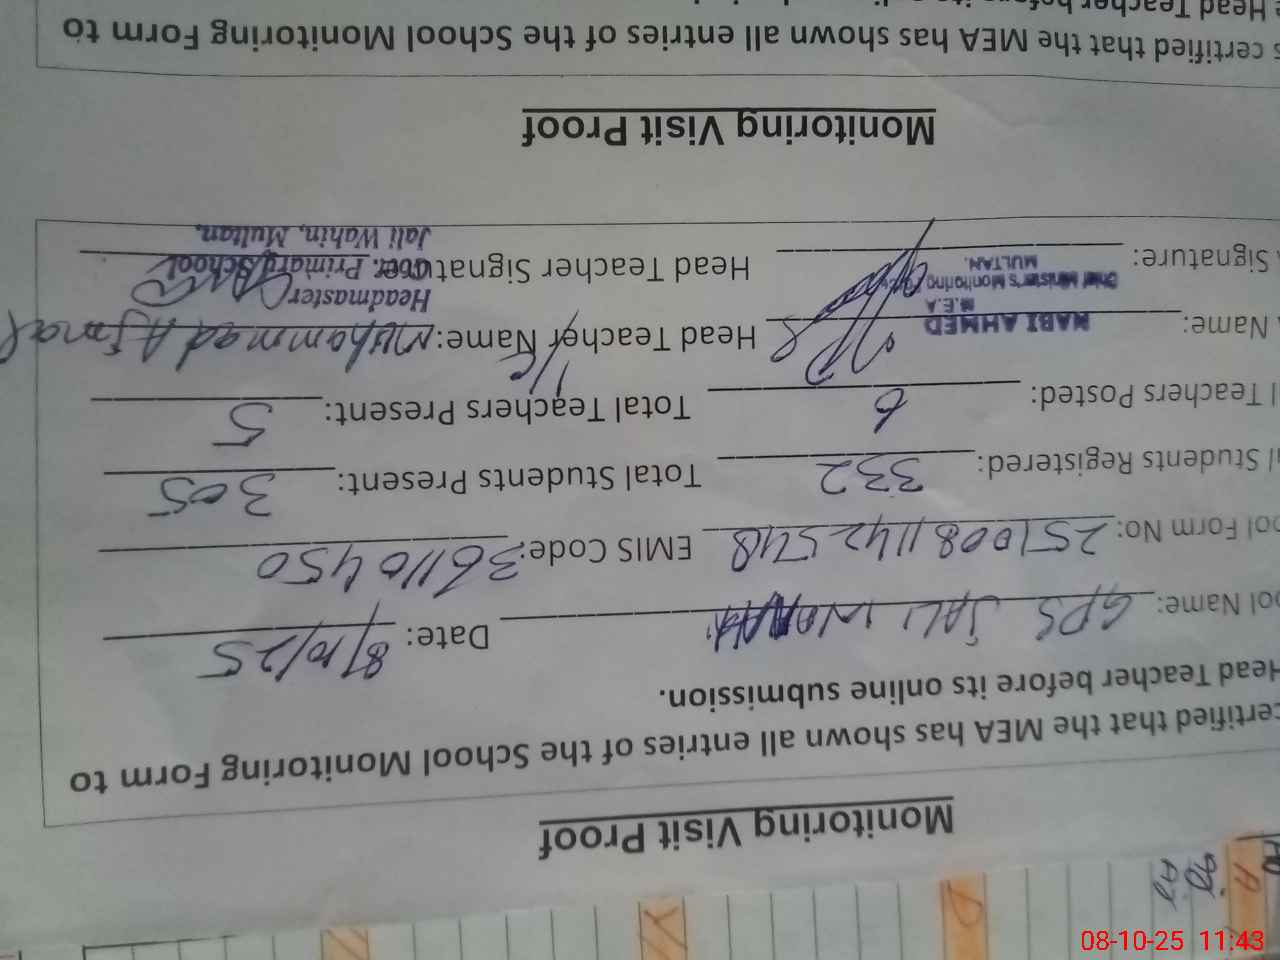 Monitoring Visit Proof
certified that the MEA has shown all entries of the School Monitoring Form to
Head Teacher before its online submission.
ool Name: GPS JALI Date: 8/10/25
ool Form No: 251008114 EMIS Code: 36110450
al Students Registered: 332 Total Students Present: 305
l Teachers Posted: 6 Total Teachers Present: 5
Name: NABI AHMED Head Teacher Name: Muhammad Ajmal
I/C
M.E.A
Chief Minister's Monitoring
MULTAN.
Headmaster
Signature: Head Teacher Signature:
Govt. Primary School
Jali Wahin, Multan.
Monitoring Visit Proof
s certified that the MEA has shown all entries of the School Monitoring Form to
e Head Teacher before its
08-10-25 11:43